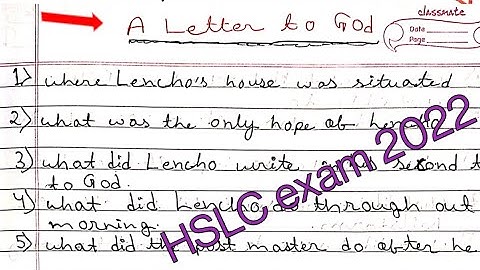 A Letter to God
classmate
Date
Page
1) where Lencho's house was situated
2) what was the only hope ob Lencho
3) what did Lencho write in second
to God.
4) what did Lencho do through out
morning.
5) what did the post master do abter he
HSLC exam 2022